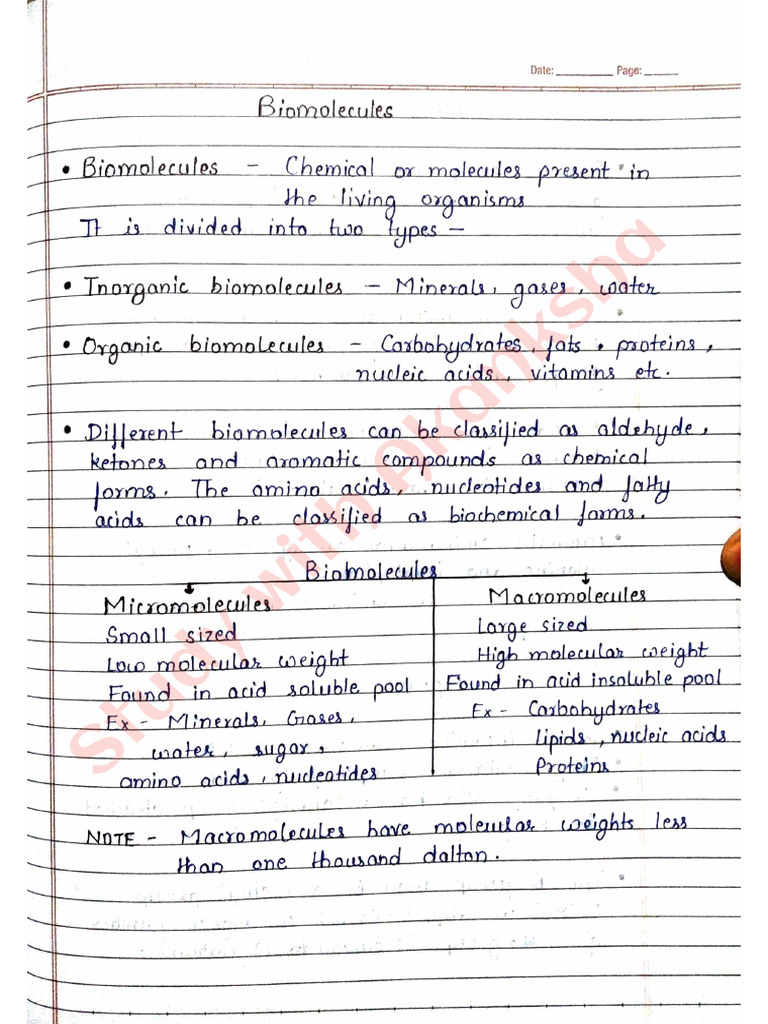 Date: ________ Page: _____
Biomolecules
• Biomolecules - Chemical or molecules present in
the living organisms
It is divided into two types -
• Inorganic biomolecules - Minerals, gases, water
• Organic biomolecules - Carbohydrates, fats, proteins,
nucleic acids, vitamins etc.
• Different biomolecules can be classified as aldehyde,
ketones and aromatic compounds as chemical
forms. The amino acids, nucleotides and fatty
acids can be classified as biochemical forms.
Biomolecules
Micromolecules
Small sized
Low molecular weight
Found in acid soluble pool
Ex - Minerals, Gases,
water, sugar,
amino acids, nucleotides
Macromolecules
Large sized
High molecular weight
Found in acid insoluble pool
Ex - Carbohydrates
Lipids, nucleic acids
Proteins
NOTE - Macromolecules have molecular weights less
than one thousand dalton.
Study with Akanksha